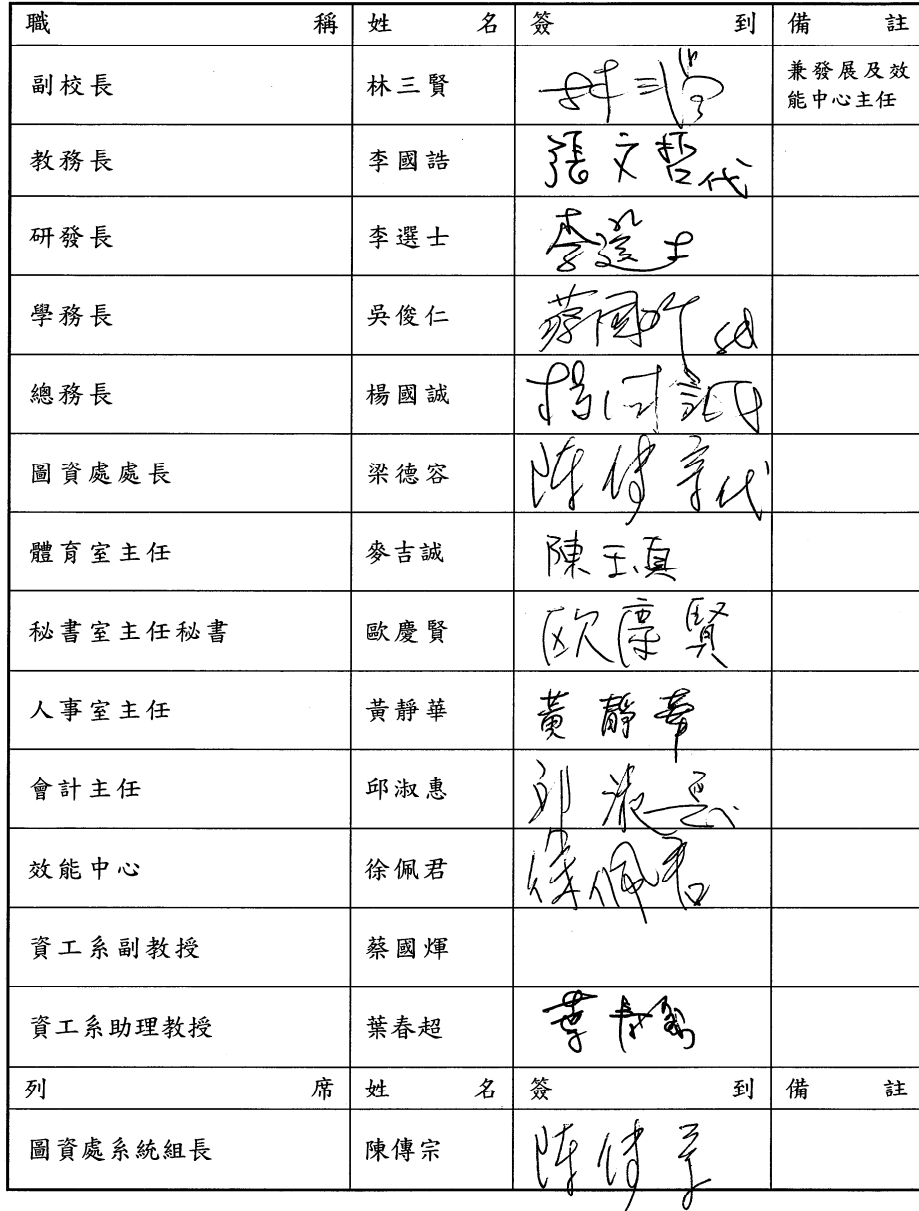 職稱 姓名 簽到 備註
副校長 林三賢 林三賢 兼發展及效
能中心主任
教務長 李國誥 張文哲代
研發長 李選士 李選士
學務長 吳俊仁 蔡國 代
總務長 楊國誠 楊国誠
圖資處處長 梁德容 陳傳宗代
體育室主任 麥吉誠 陳玉真
秘書室主任秘書 歐慶賢 欧慶賢
人事室主任 黃靜華 黃靜華
會計主任 邱淑惠 邱淑惠
效能中心 徐佩君 徐佩君
資工系副教授 蔡國煇
資工系助理教授 葉春超 葉春超
列席 姓名 簽到 備註
圖資處系統組長 陳傳宗 陳傳宗